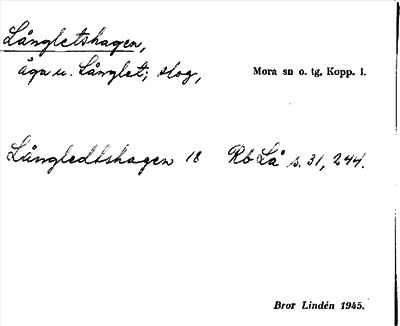 Långletshagen,
äga u. Långlet; skog, Mora sn o. tg, Kopp. l.
Långledtshagen 18 Rb Lå s. 31, 244.
Bror Lindén 1945.